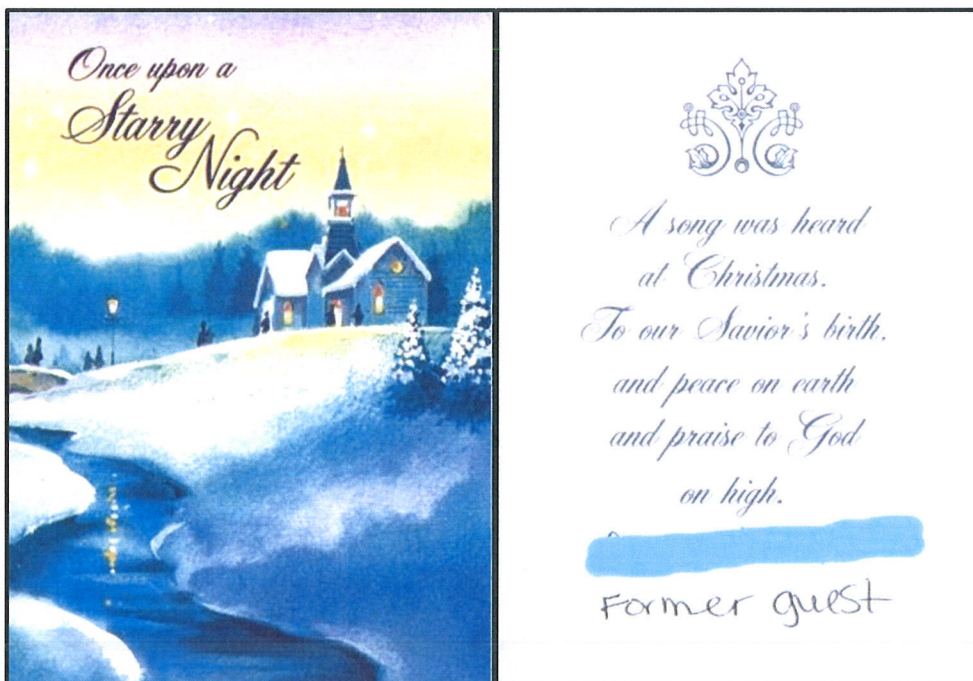 Once upon a
Starry
Night
A song was heard
at Christmas.
To our Savior's birth,
and peace on earth
and praise to God
on high.
Former guest